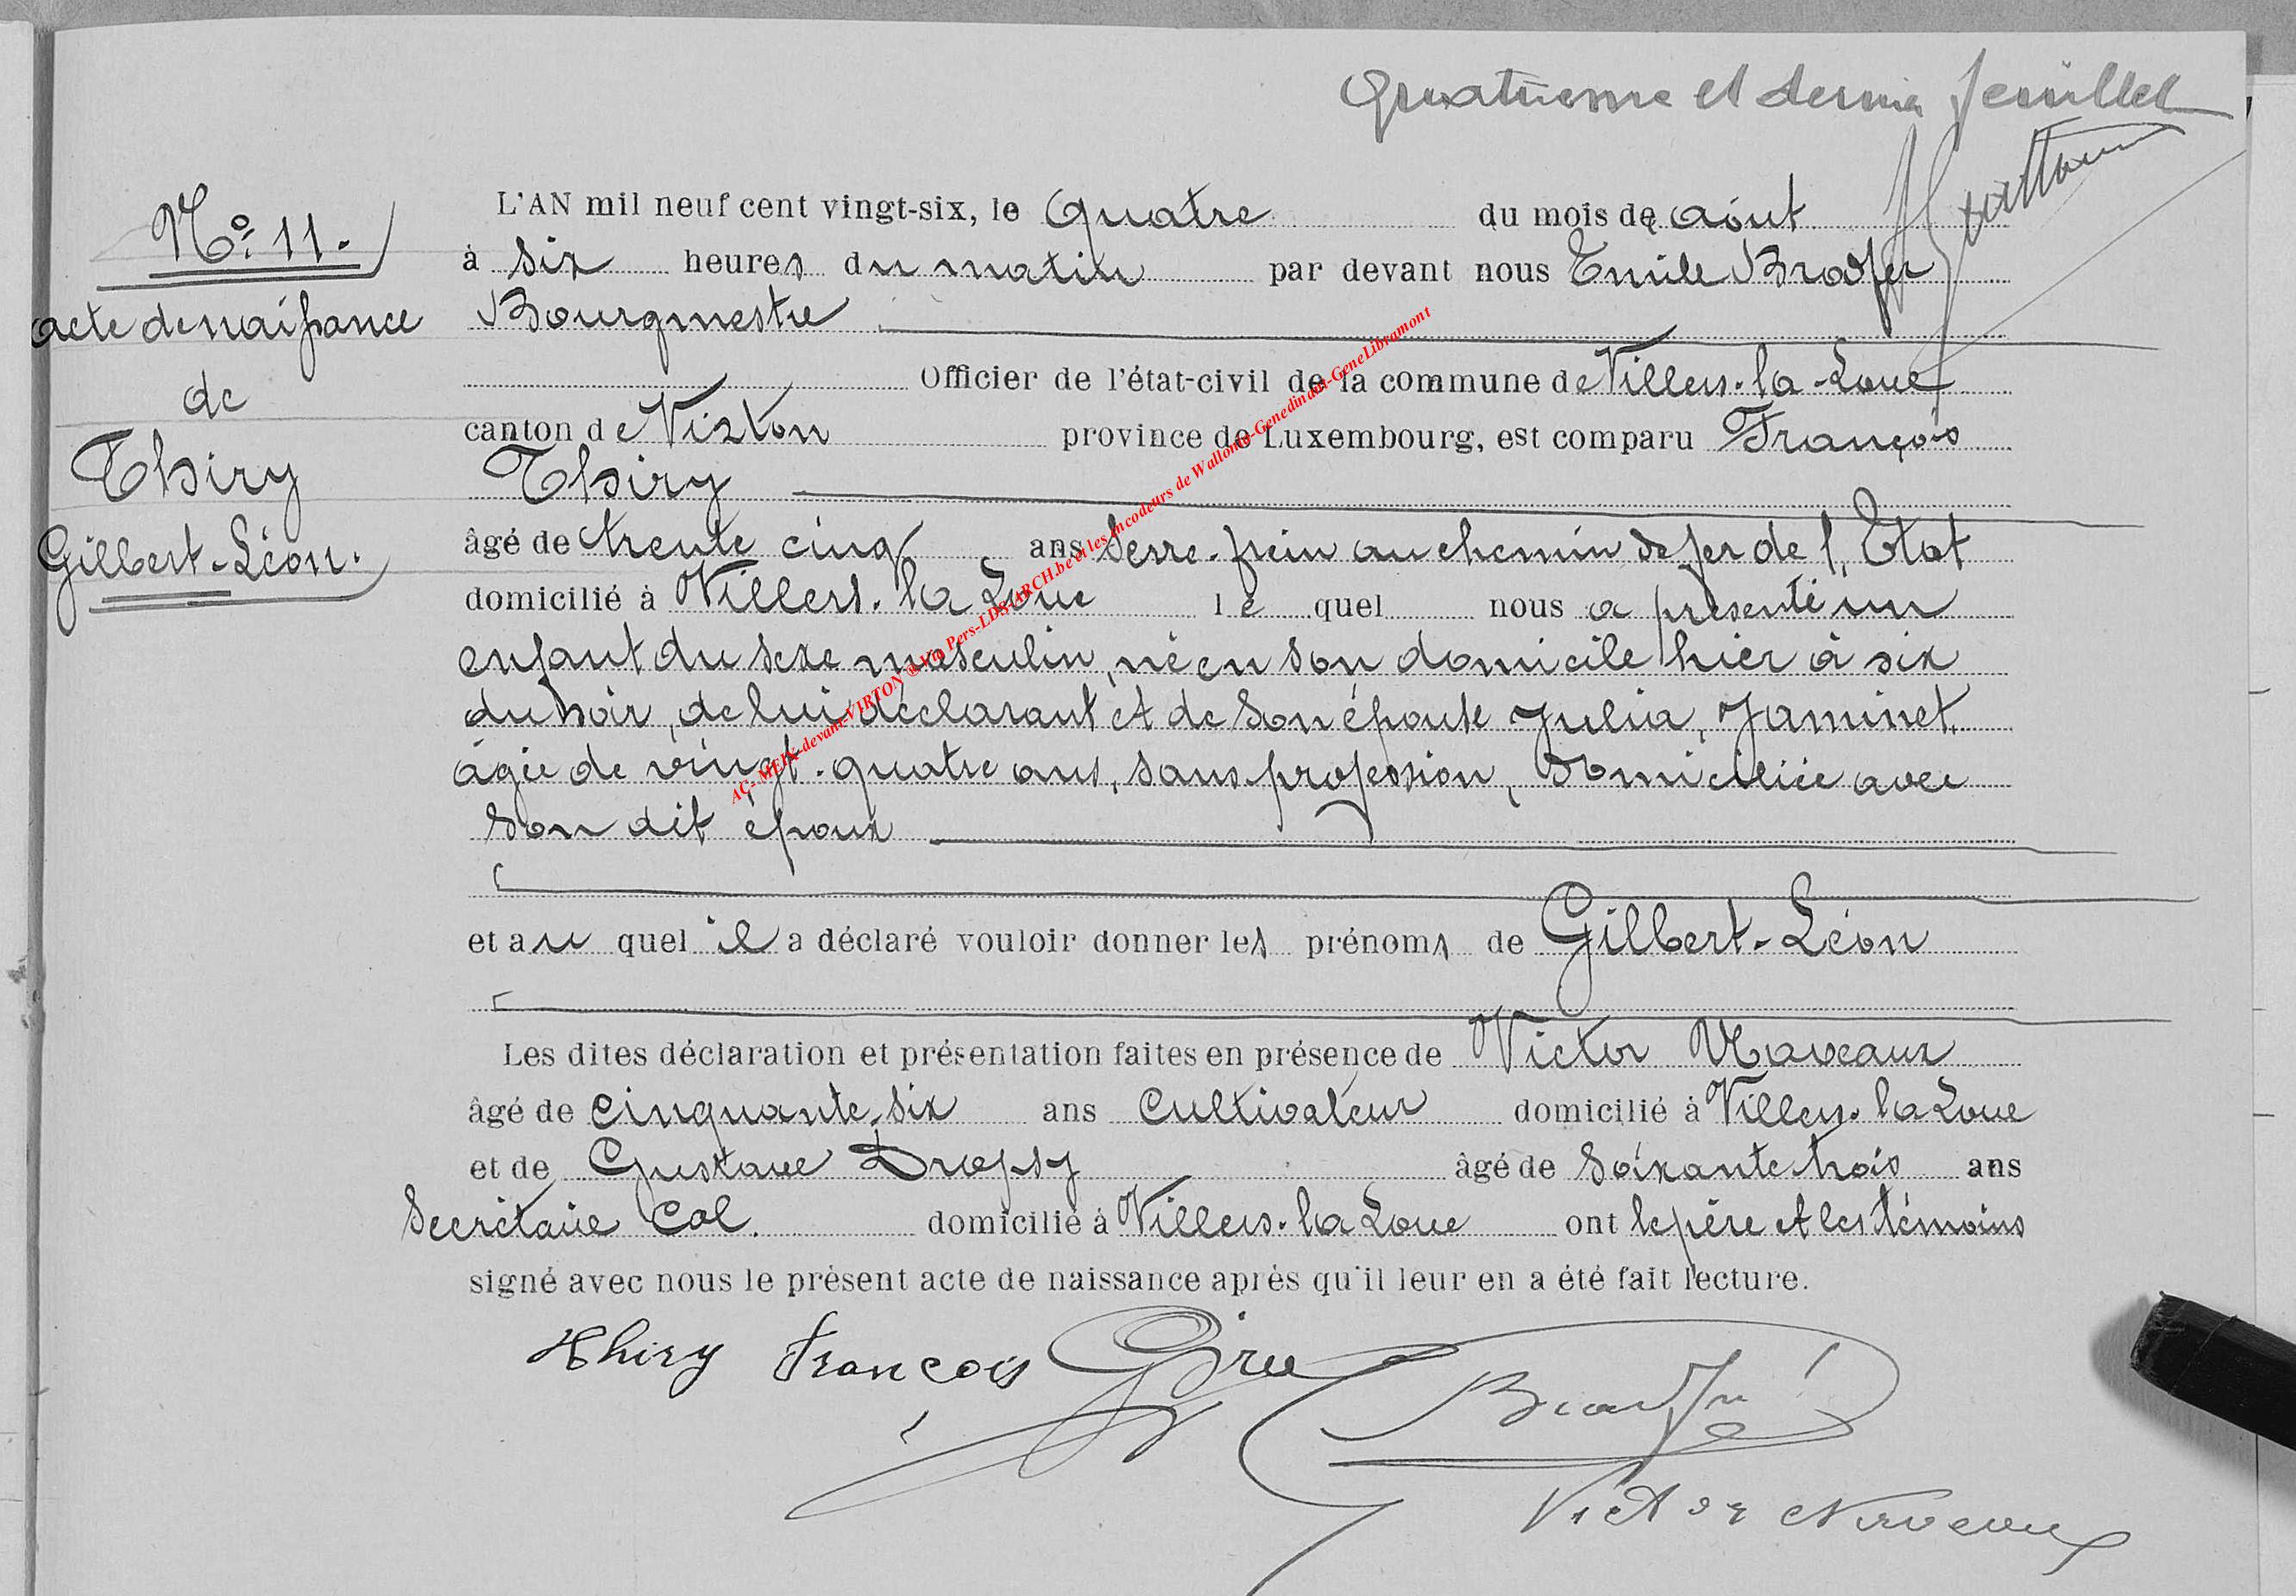 Quatrième et dernier feuillet
No. 11.
acte de naissance
de
Thiry
Gilbert-Léon.
L'AN mil neuf cent vingt-six, le quatre du mois de août
à six heures du matin par devant nous Emile Bradfer
Bourgmestre
Officier de l'état-civil de la commune de Villers-la-Loue
canton de Virton province de Luxembourg, est comparu François
Thiry
âgé de trente cinq ans serre-frein au chemin de fer de l'Etat
domicilié à Villers-la Loue le quel nous a présenté un
enfant du sexe masculin, né en son domicile hier à six
du soir, de lui déclarant et de son épouse Julia, Jaminet,
âgée de vingt-quatre ans, sans profession, domiciliée avec
son dit époux
et au quel il a déclaré vouloir donner les prénoms de Gilbert-Léon
Les dites déclaration et présentation faites en présence de Victor
âgé de cinquante-six ans cultivateur domicilié à Villers-la Loue
et de Gustave Dropsy âgé de soixante trois ans
Secrétaire Col. domicilié à Villers-la Loue ont le père et les témoins
signé avec nous le présent acte de naissance après qu'il leur en a été fait lecture.
Thiry François
Bradfer
Victor
AC-MEIX-devant-VIRTON @ Via Pers-LDS-ARCH.be et les encodeurs de Wallonia-Genedinant-GeneLibramont